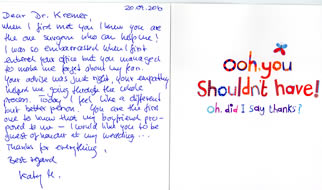 20.09.2010
Dear Dr. Kremer,
when I first met you I knew you are
the one surgeon who can help me!
I was so embarrassed when I first
entered your office but you managed
to make me forget about my fear.
Your advise was just right, your empathy
helped me going through the whole
process. Today I feel like a different
but better person. You are the first
one to know that my boyfriend pro-
posed to me - I would like you to be
guest of honour at my wedding...
Thanks for everything,
Best regard
Katy M.
ooh, you
shouldn't have!
oh, did I say thanks?